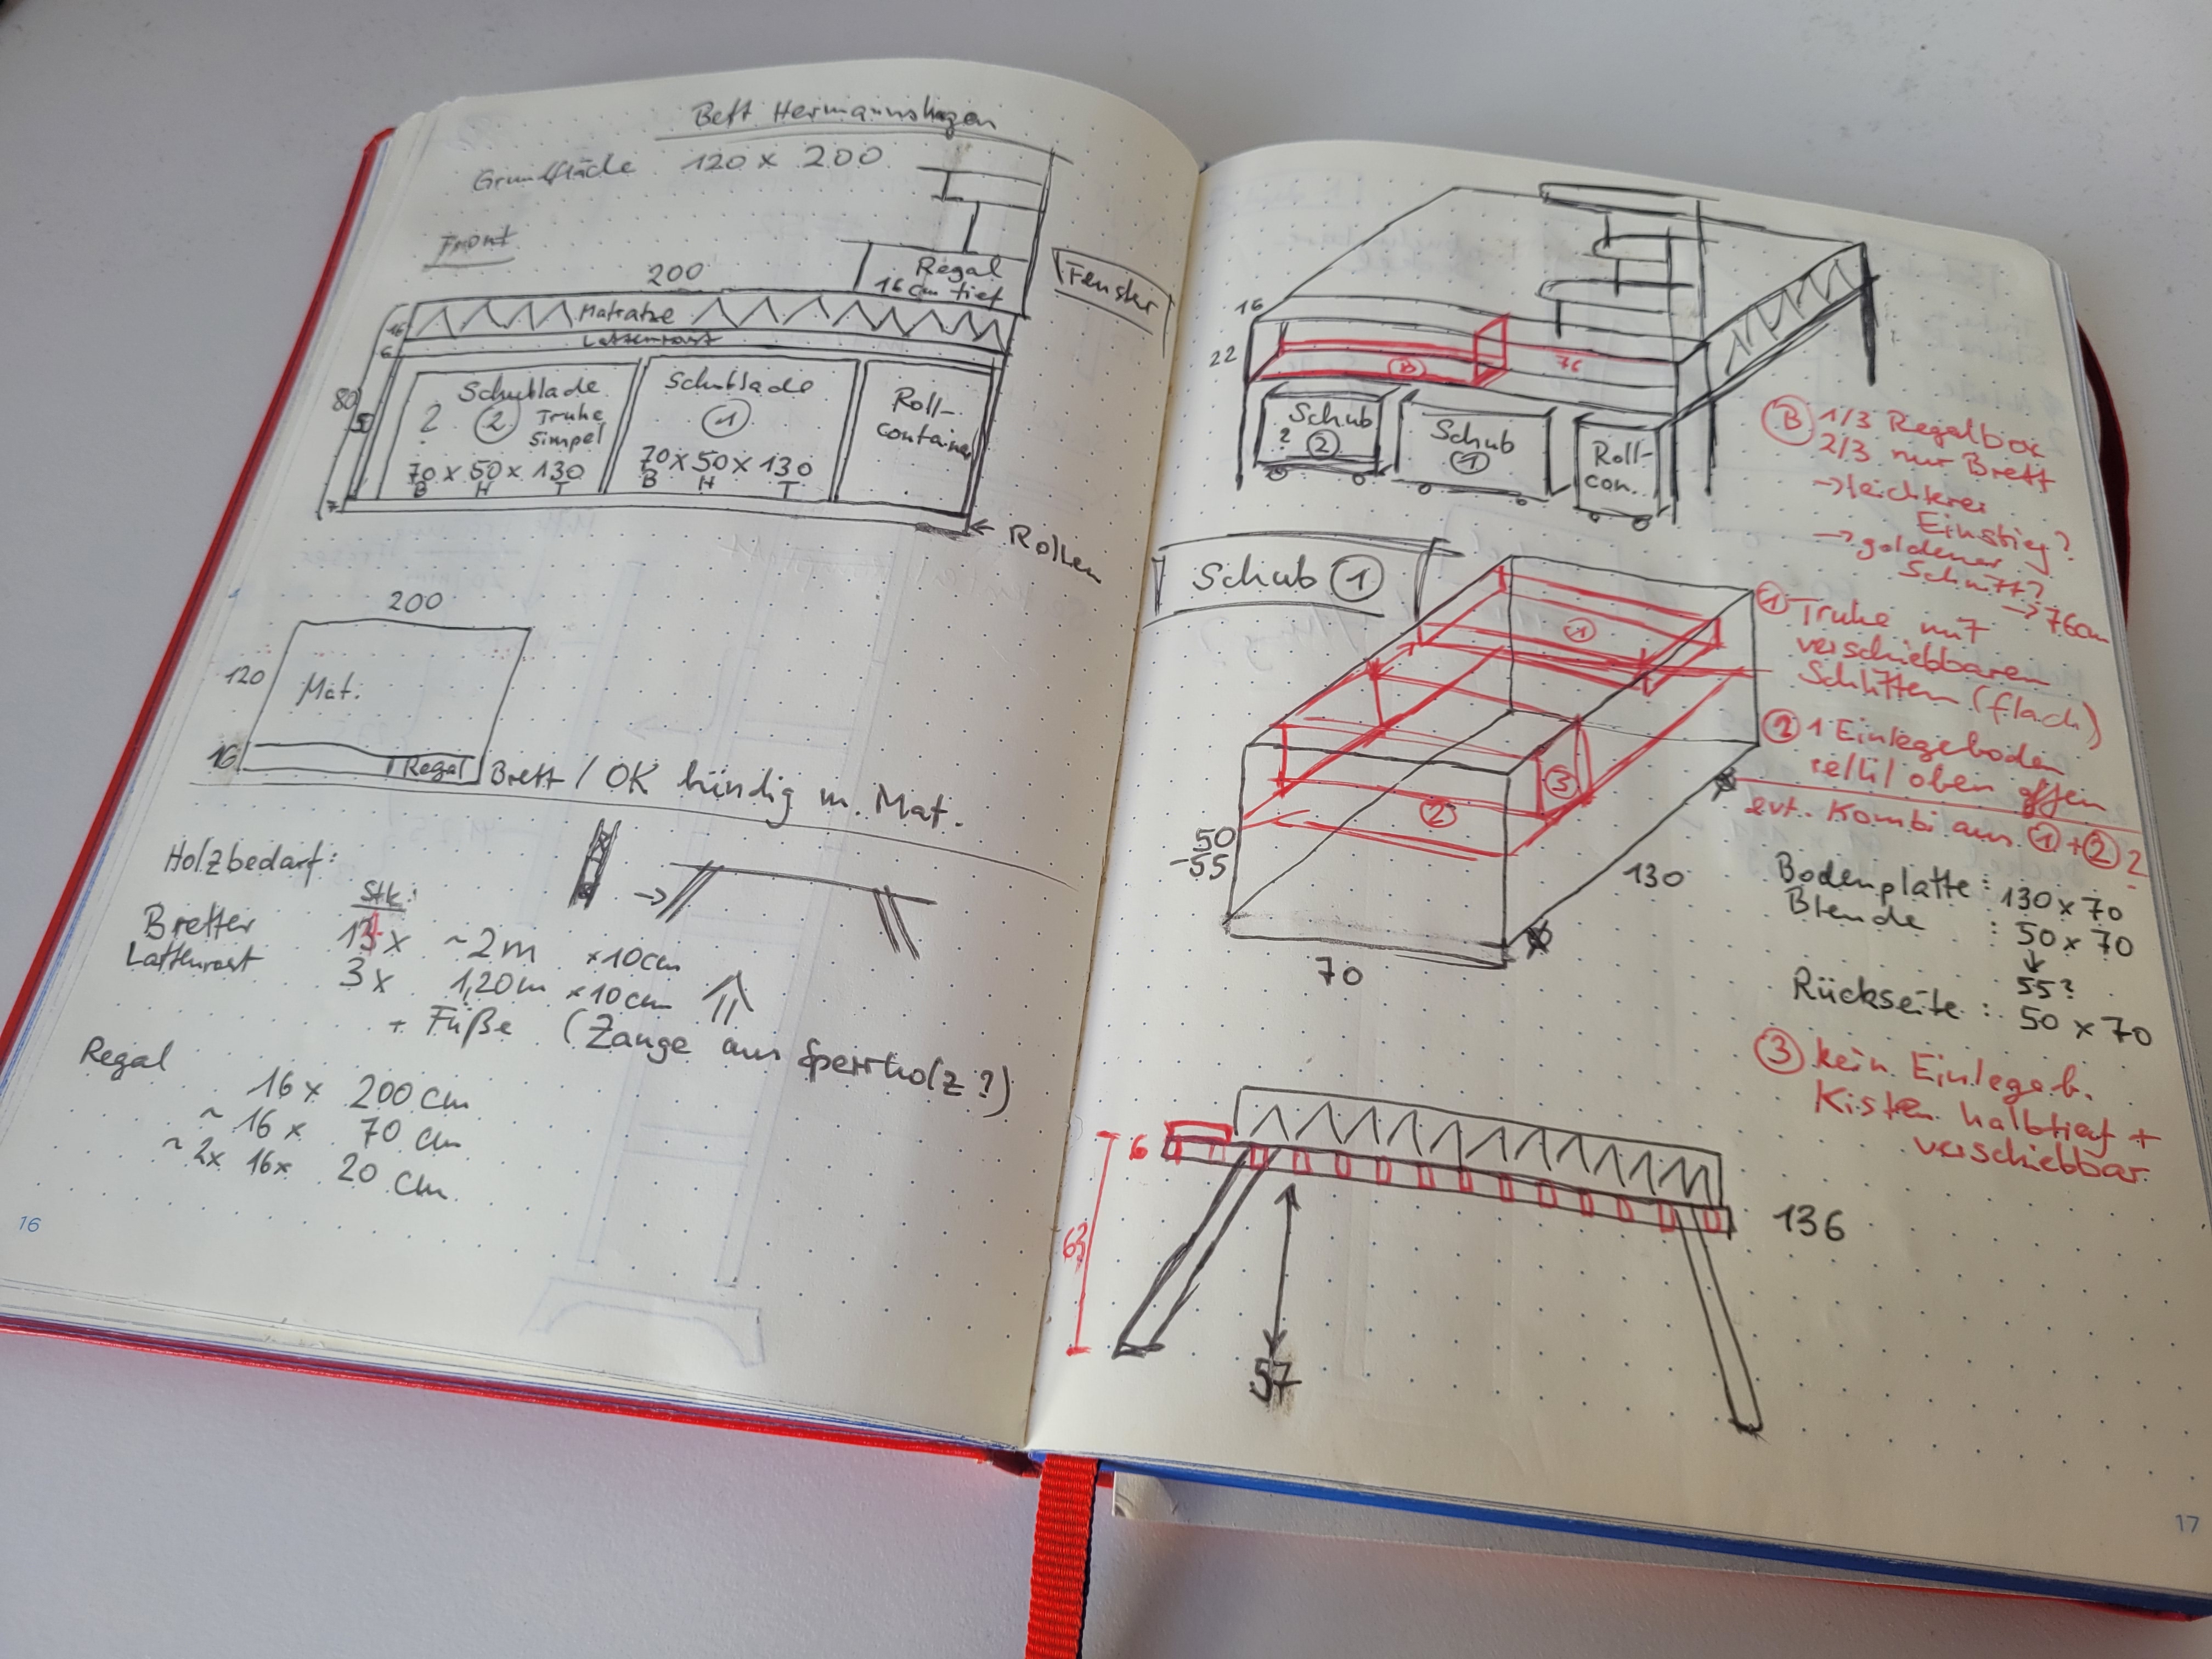 Bett Hermannshagen
Grundfläche 120 x 200
Front
200
Regal
16 cm tief
Fenster
16
Matratze
6
Lattenrost
80
Schublade
? ② Truhe
simpel
70 x 50 x 130
B H T
Schublade
①
70 x 50 x 130
B H T
Roll-
container
7
← Rollen
200
120
Mat.
16
Regal
Brett / OK bündig m. Mat.
Holzbedarf:
Stk:
Bretter 14x ~2m x10cm
Lattenrost 3x 1,20m x10cm
+ Füße (Zange aus Sperrholz?)
Regal
16 x 200 cm
~ 16 x 70 cm
~ 2x 16x 20 cm
16
16
22
B
76
Schub
? ②
Schub
①
Roll-
con.
Ⓑ 1/3 Regalbox
2/3 nur Brett
→ leichterer
Einstieg?
→ goldener
Schnitt?
→ 76cm
Schub ①
①
②
③
50
-55
70
130
① Truhe mit
verschiebbaren
Schlitten (flach)
② 1 Einlegeboden
oben offen
evt. Kombi aus ①+②?
Bodenplatte: 130 x 70
Blende : 50 x 70
↓
55?
Rückseite : 50 x 70
③ kein Einlegeb.
Kisten halbtief +
verschiebbar
6
63
57
136
17